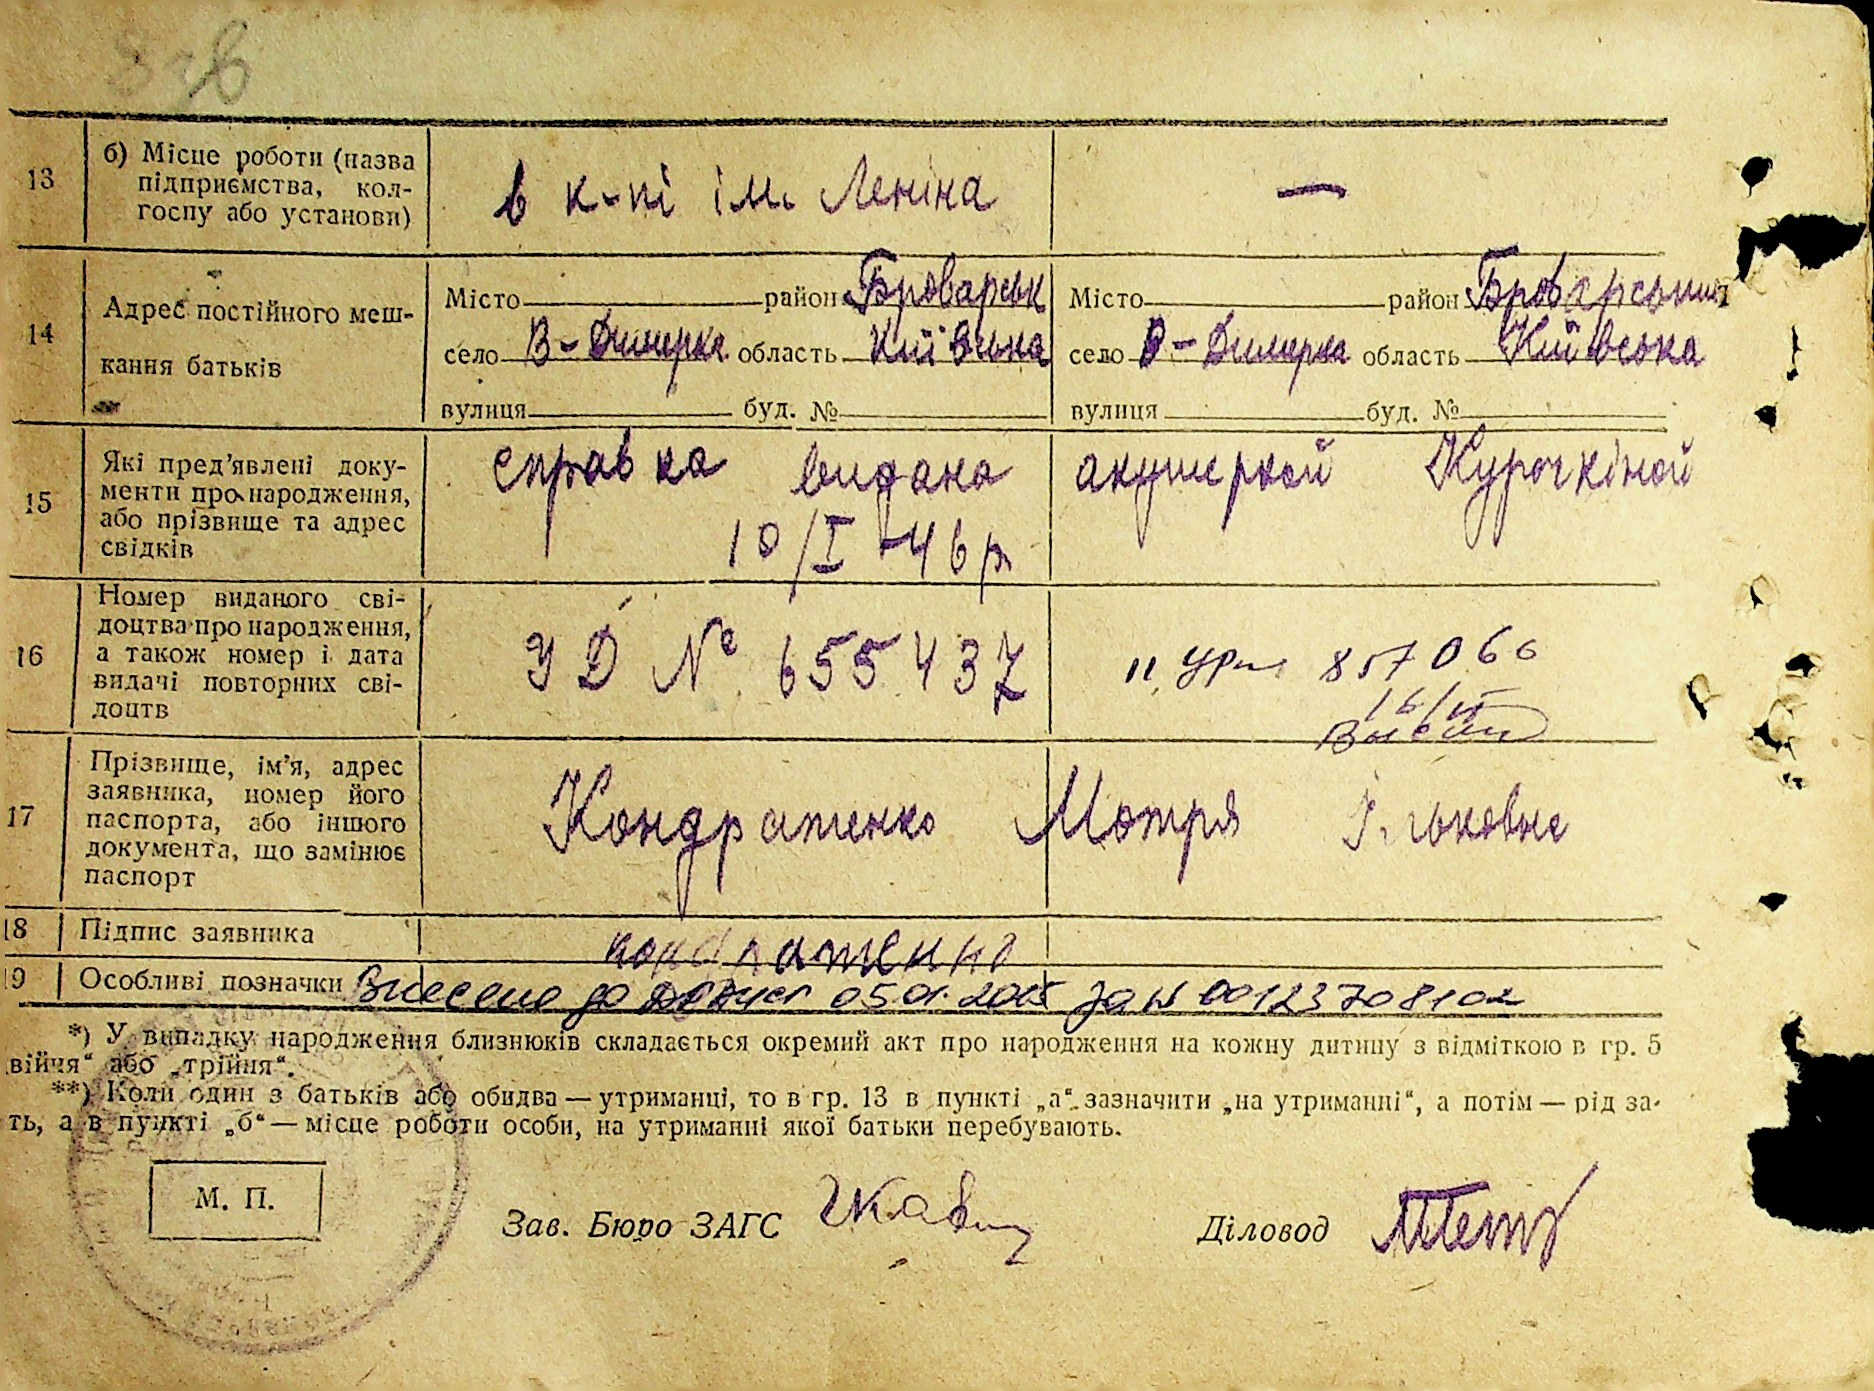 13 б) Місце роботи (назва підприємства, кол-госпу або установи) в к-пі ім. Леніна —
14 Адрес постійного меш-кання батьків
Місто район Броварськ Місто район Броварський
село В-Димерка область Київська село В-Димерка область Київська
вулиця буд. № вулиця буд. №
15 Які пред'явлені доку-
менти про народження,
або прізвище та адрес
свідків
справка видана акушеркой Курочкіной
10/I-46 р
16 Номер виданого сві-
доцтва про народження,
а також номер і дата
видачі повторних сві-
доцтв
УД № 655437
857066
17 Прізвище, ім'я, адрес
заявника, номер його
паспорта, або іншого
документа, що замінює
паспорт
Кондратенко Мотря Ільковна
18 Підпис заявника кондратенко
19 Особливі позначки Внесено до 05.01.2015 за № 00123708102
*) У випадку народження близнюків складається окремий акт про народження на кожну дитину з відміткою в гр. 5
війня“ або „трійня“.
**) Коли один з батьків або обидва — утриманці, то в гр. 13 в пункті „а“ зазначити „на утриманні“, а потім — рід за-
ть, а в пункті „б“ — місце роботи особи, на утриманні якої батьки перебувають.
М. П.
Зав. Бюро ЗАГС Діловод